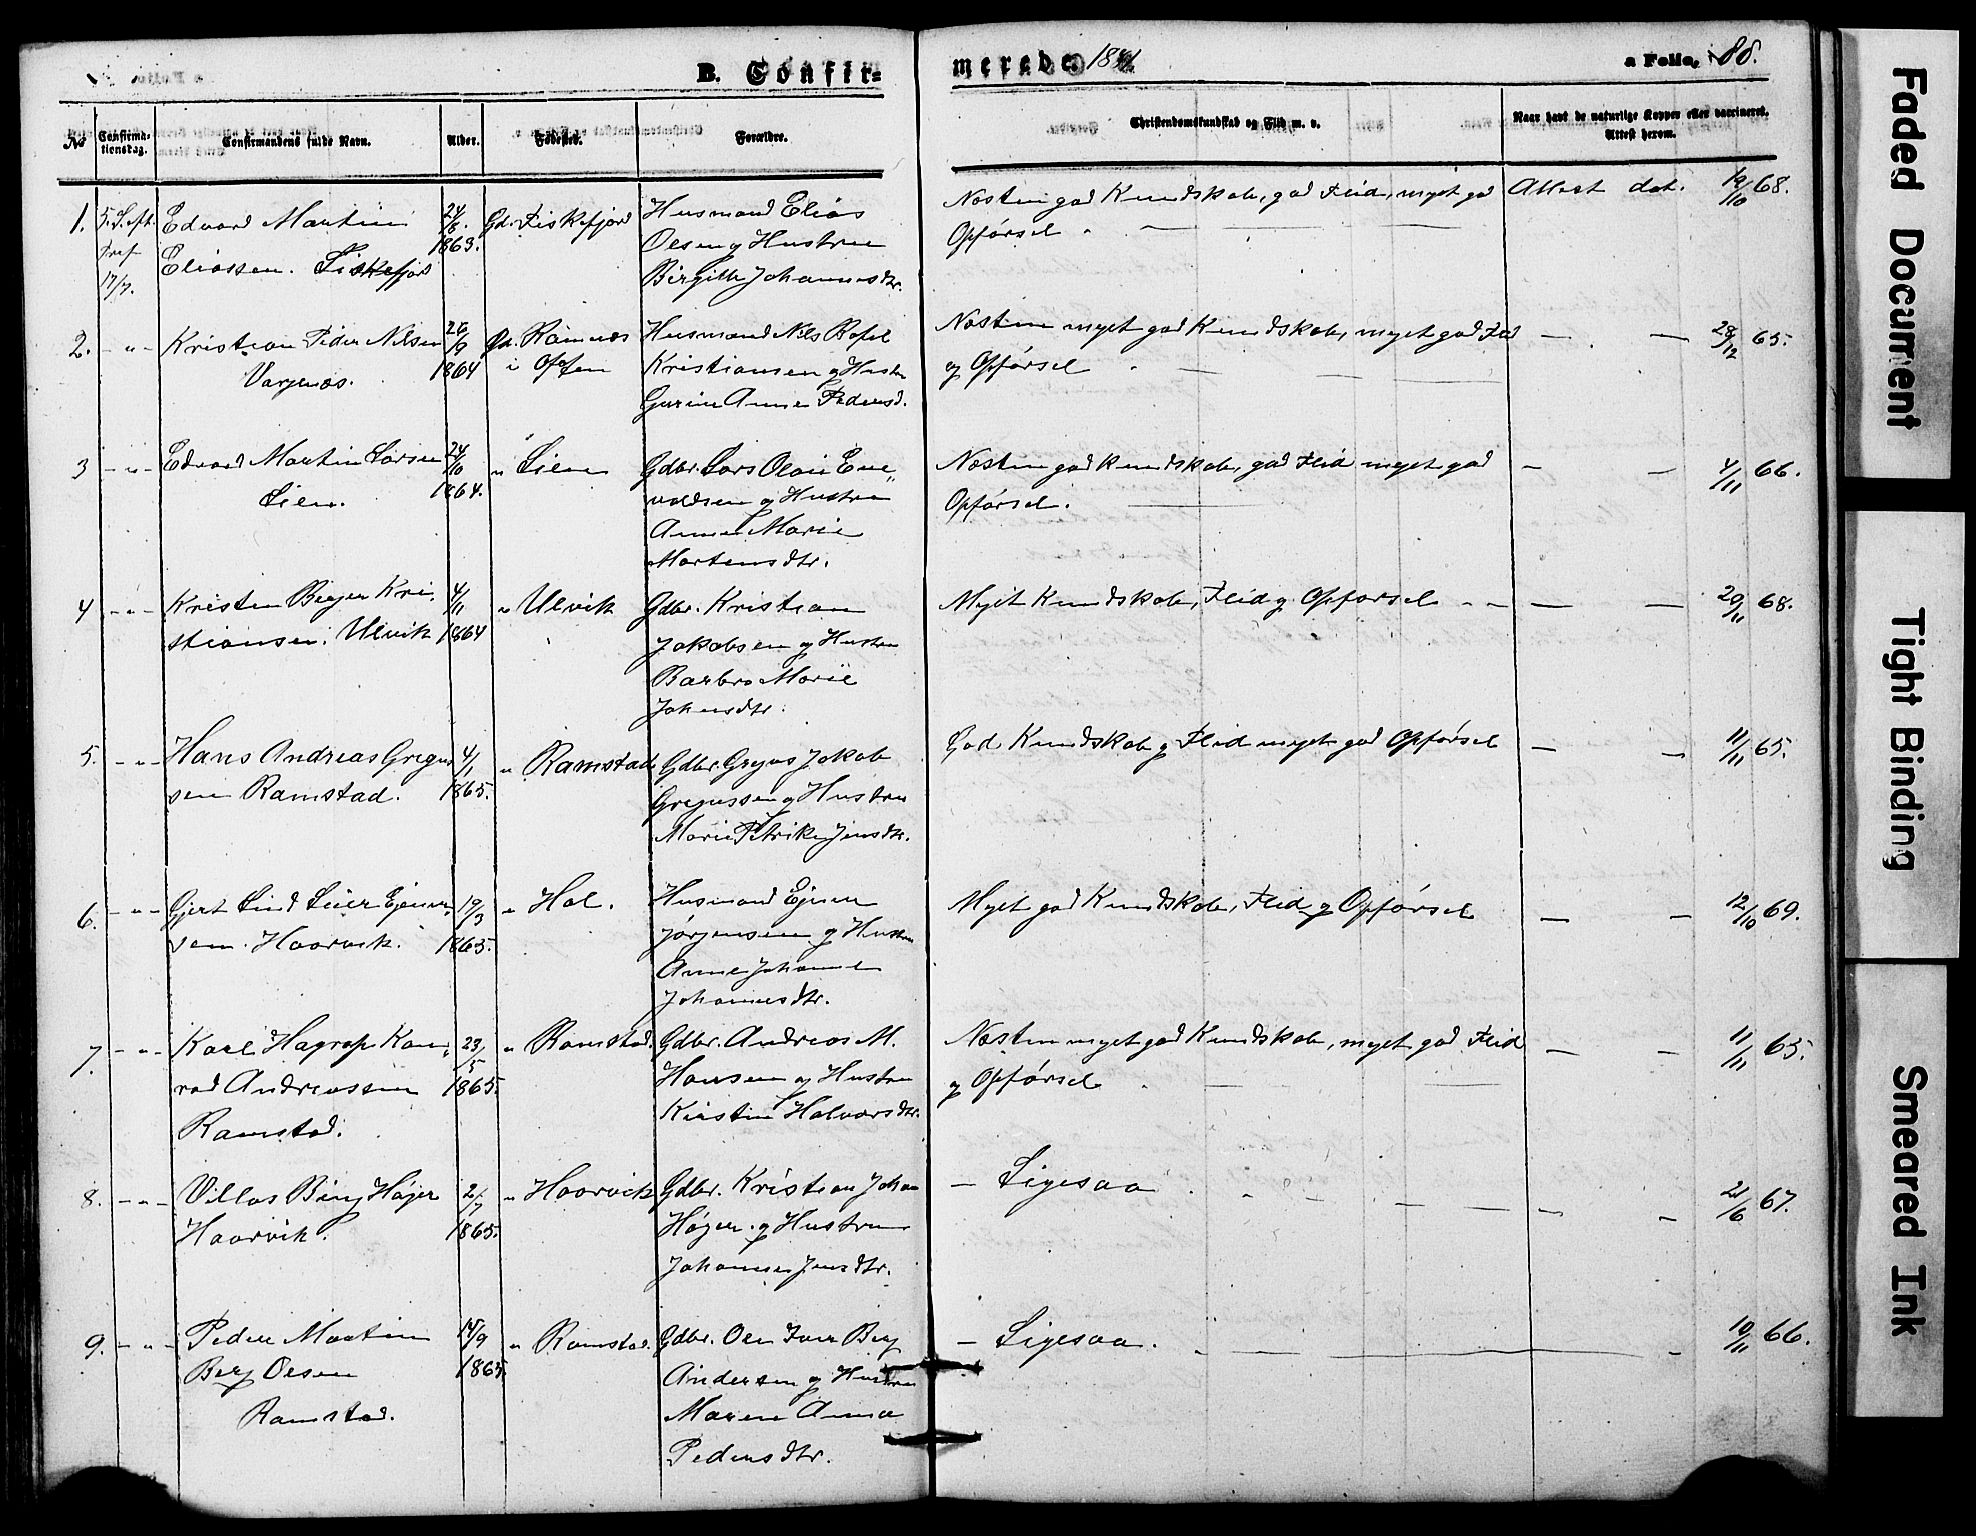 B. Confir=
merede. 1881.
a Folio, 88.
No
Confirma-
tionsdag.
Confirmandens fulde Navn.
Alder.
Fødested.
Forældre.
Christendomskundskab og Flid m. v.
Naar havt de naturlige Kopper eller vaccineret.
Attest herom.
1.
17/7.
Edvard Martin
Eliassen. Fiskefjord
24/8.
1863.
Gd. Fiskefjord
Husmand Elias
Olsen og Hustru
Birgitte Johannesdtr.
Næsten god Kundskab, god Flid, meget god
Opførsel
Attest dat. 19/10 68.
2. - " -
Kristian Peder Nilsen
Vargenæs.
26/9
1864
Gd. Ramnæs
i Ofoten
Husmand Nils Bofel
Kristiansen og Hustru
Gurine Anna Pedersd.
Næsten meget god Kundskab, meget god Flid
og Opførsel
— — 28/12 65.
3 - " -
Edvard Martin Larsen
Lien.
24/10
1864.
" Lien
Gdbr. Lars Olai Ene"
valdsen og Hustru
Anne Marie
Mortensdtr.
Næsten god Kundskab, god Flid meget god
Opførsel.
— — 4/11 66.
4 - " -
Kristen Berger Kri,
stiansen. Ulvik
4/11
1864
" Ulvik
Gdbr. Kristian
Jakobsen og Hustru
Barbro Marie
Johnsdtr.
Meget Kundskab, Flid og Opførsel
— — 20/11 68.
5. - " -
Hans Andreas Gregus
sen Ramstad.
4/1
1865.
" Ramstad
Gdbr. Gregus Jakob
Gregussen og Hustru
Marie Petrikke Jensdtr.
God Kundskab og Flid meget god Opførsel
— — 11/11 65.
6. - " -
Gjert Lind Leier Ejnar,
sen. Haarvik.
19/3
1865.
" Hol.
Husmand Ejnar
Jørgensen og Hustru
Anne Johanna
Johannesdtr.
Meget god Kundskab, Flid og Opførsel
— — 12/10 69.
7. - " -
Karl Hagrop Kon,
rad Andreassen
Ramstad.
23/5
1865.
" Ramstad.
Gdbr. Andreas M.
Hansen og Hustru
Kirstin Halvorsdtr.
Næsten meget god Kundskab, meget god Flid
og Opførsel
— — 11/11 65.
8. - " -
Villas Berg Højer
Haarvik.
2/7
1865.
" Haarvik
Gdbr. Kristian Johan
Høyer og Hustru
Johanna Jensdtr.
— Ligesaa
— — 21/6 67.
9. - " -
Peder Martin
Berg Olsen
Ramstad.
14/9
1865.
" Ramstad.
Gdbr. Ole Iver Berg
Andersen og Hustru
Maren Anna
Pedersdtr.
— Ligesaa.
— 10/11 66.
Faded Document
Tight Binding
Smeared Ink